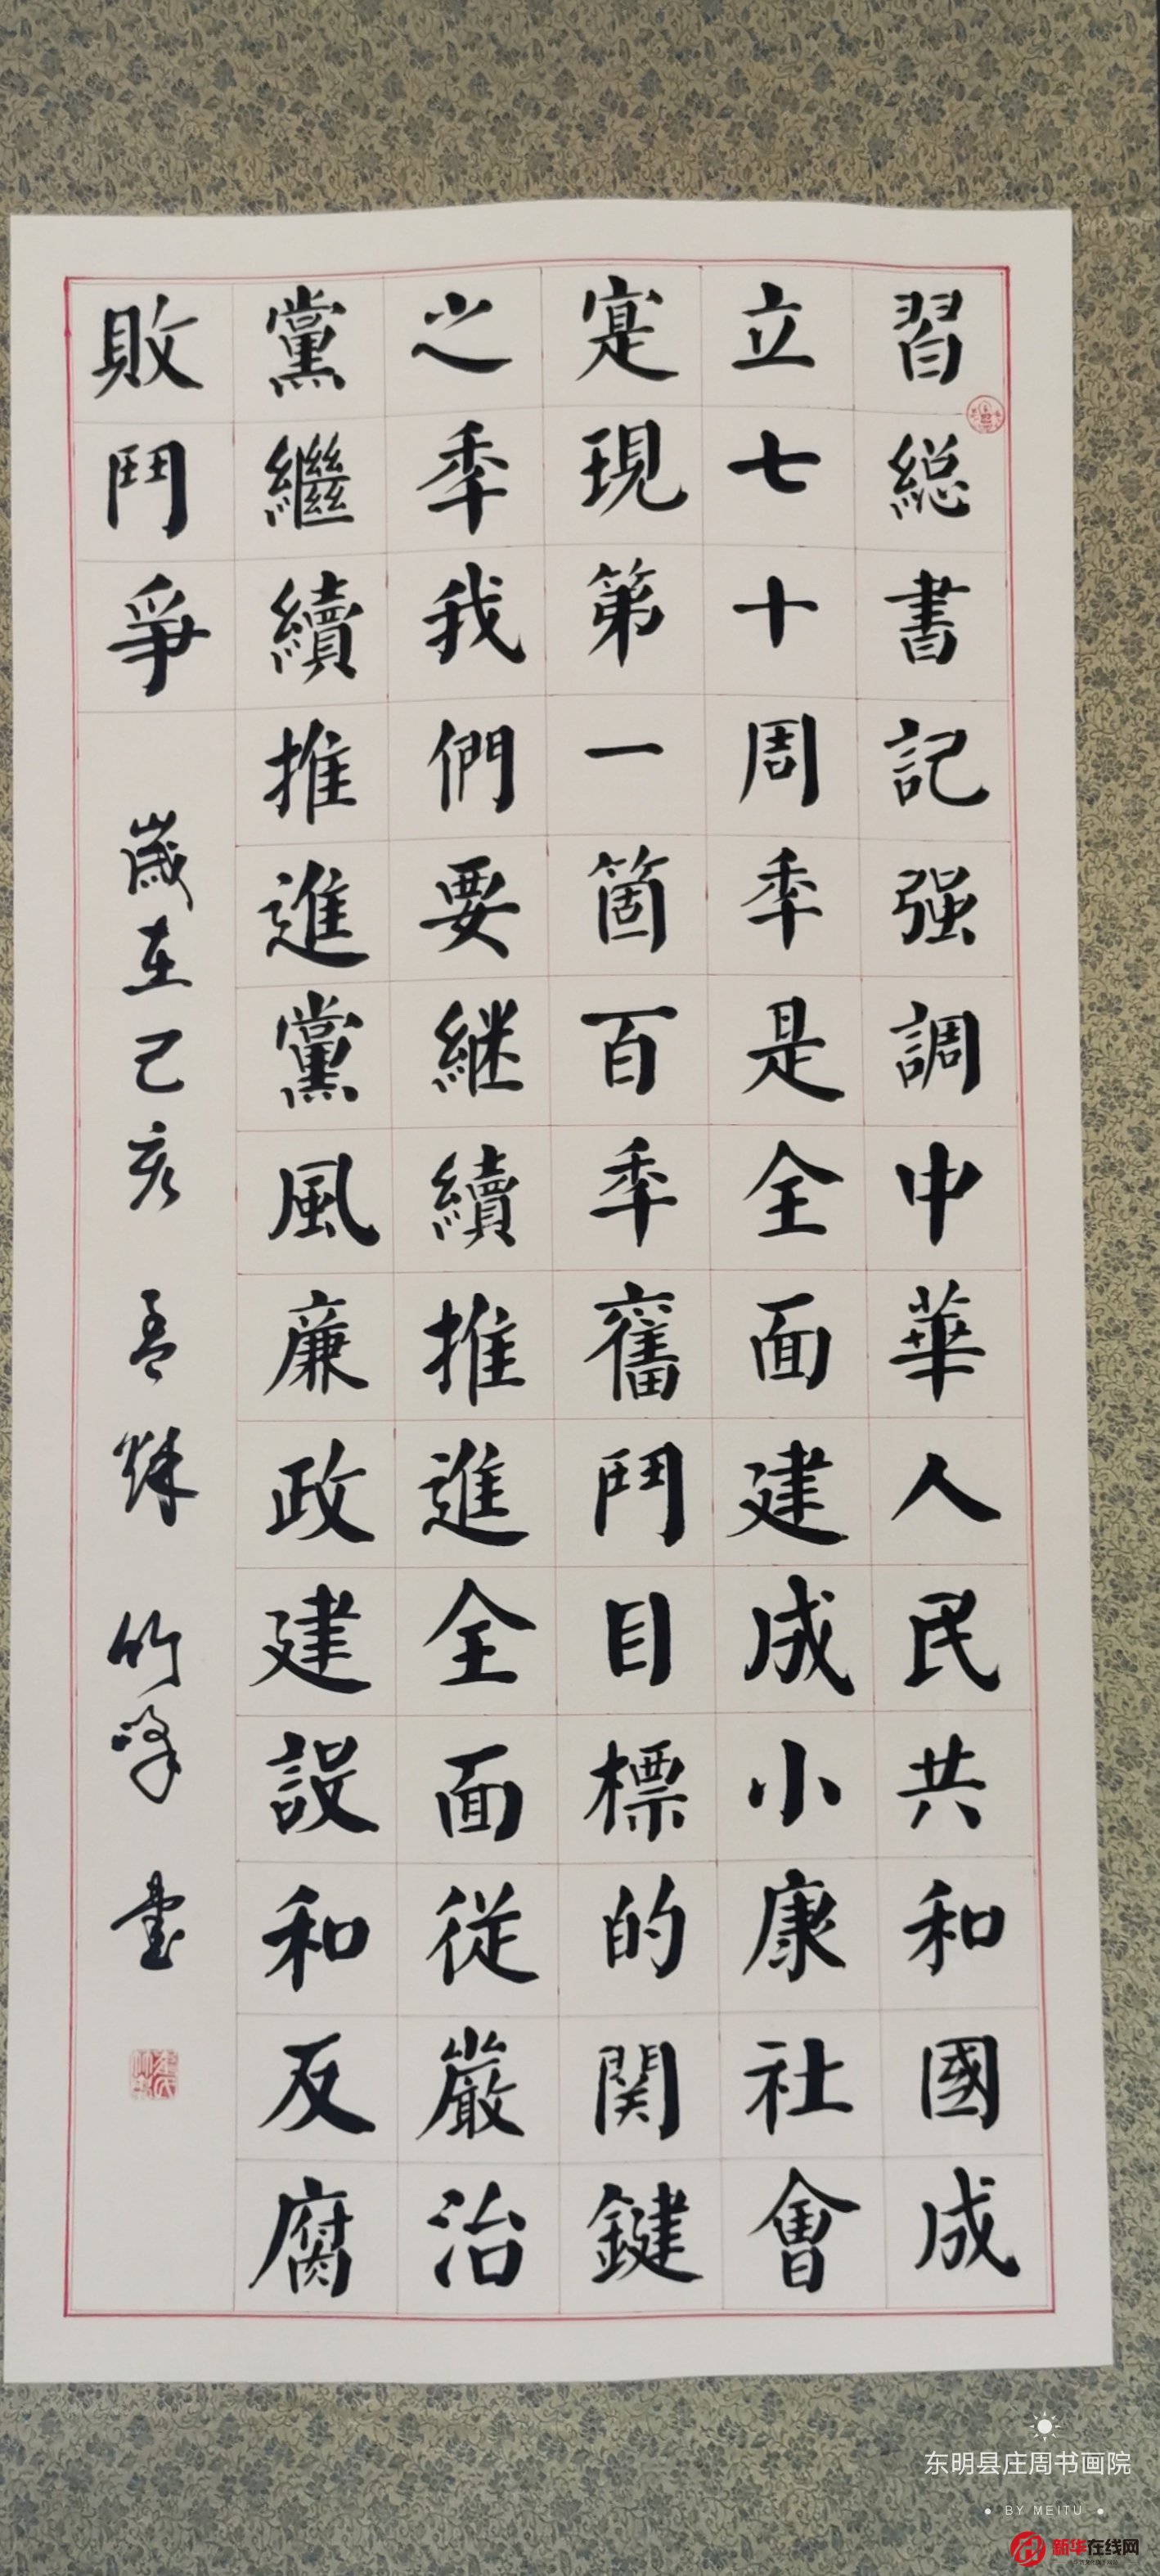 習総書記强調中華人民共和國成
立七十周季是全面建成小康社會
寔現第一箇百季奮鬥目標的関鍵
之季我們要継續推進全面從嚴治
黨繼續推進黨風廉政建設和反腐
敗鬥爭
歲在己亥 孟秋 竹峰書
东明县庄周书画院
BY MEITU
新华在线网